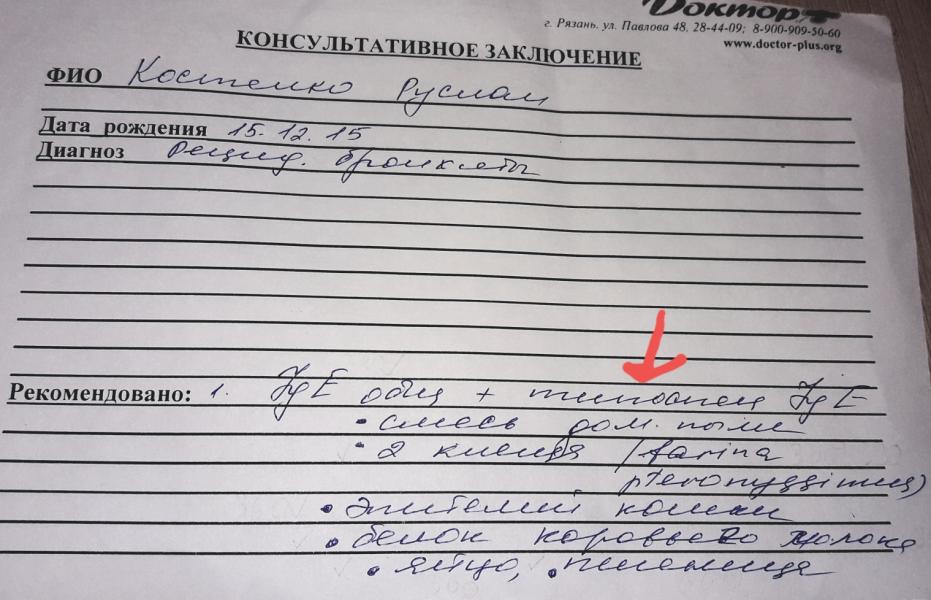 Доктор+
г. Рязань. ул. Павлова 48, 28-44-09; 8-900-909-50-60
www.doctor-plus.org
КОНСУЛЬТАТИВНОЕ ЗАКЛЮЧЕНИЕ
ФИО Костенко Руслан
Дата рождения 15.12.15
Диагноз Рецид. бронхиты
Рекомендовано: 1. IgE общ + IgE
• смесь дом. пыли
• 2 клеща (farina
pteronyssinus)
• эпителий кошки
• белок коровьего молока
• яйцо, • пшеница